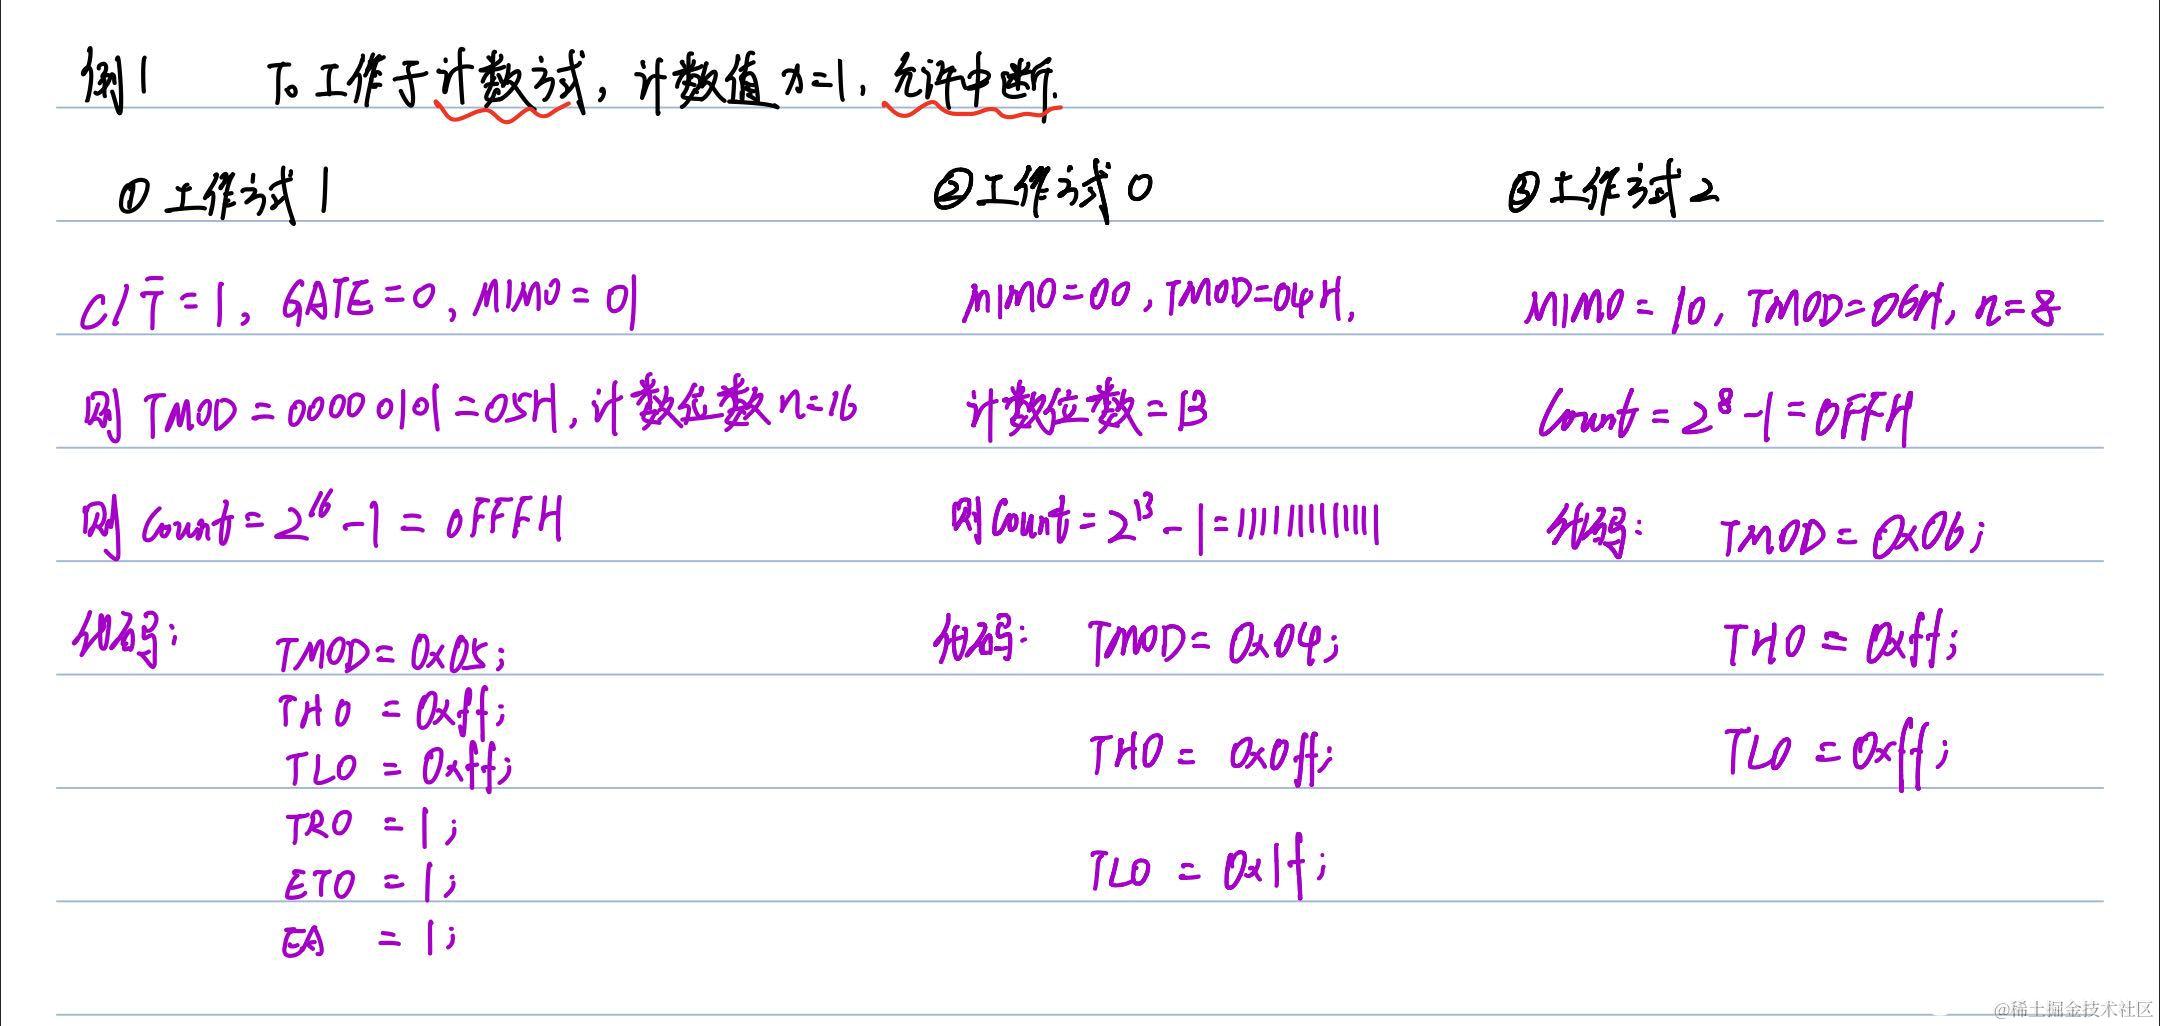 例1 T0 工作于计数方式，计数值 x=1，允许中断.
① 工作方式 1
C/T̅ = 1, GATE = 0, M1M0 = 01
则 TMOD = 0000 0101 = 05H, 计数位数 n=16
则 Count = 2^16 - 1 = 0FFFH
代码:
TMOD = 0x05;
TH0 = 0xff;
TL0 = 0xff;
TR0 = 1;
ET0 = 1;
EA = 1;
② 工作方式 0
M1M0=00, TMOD=04H,
计数位数 = 13
则 Count = 2^13 - 1 = 1111111111111
代码: TMOD = 0x04;
TH0 = 0x0ff;
TL0 = 0x1f;
③ 工作方式 2
M1M0 = 10, TMOD=06H, n=8
Count = 2^8 - 1 = 0FFH
代码: TMOD = 0x06;
TH0 = 0xff;
TL0 = 0xff;
@稀土掘金技术社区